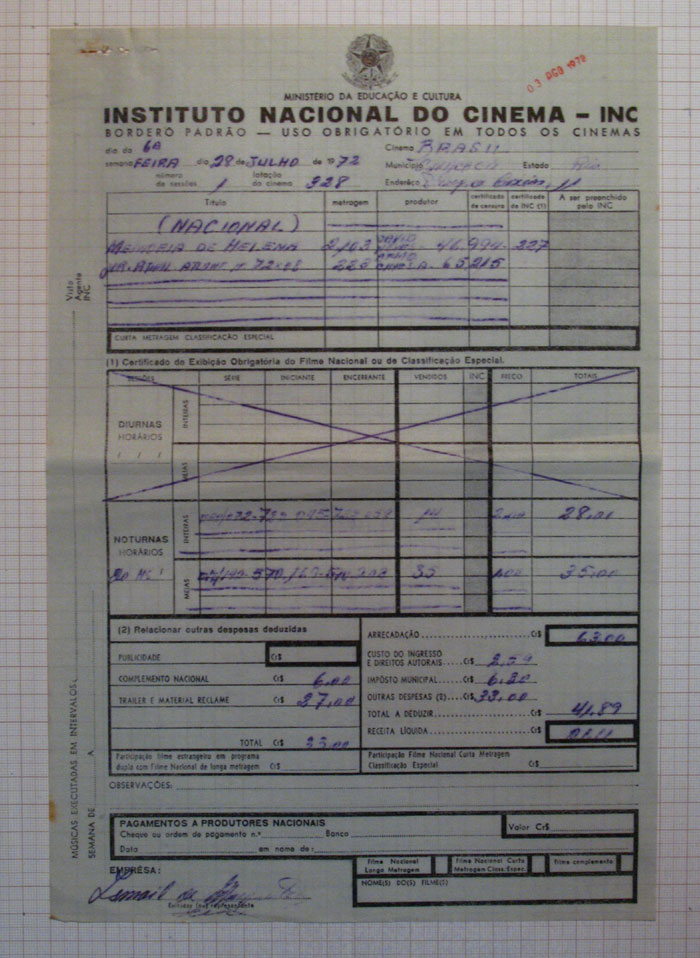 03 AGO 1972
MINISTÉRIO DA EDUCAÇÃO E CULTURA
INSTITUTO NACIONAL DO CINEMA – INC
BORDERÔ PADRÃO — USO OBRIGATÓRIO EM TODOS OS CINEMAS
dia da 6a Cinema BRASIL
semana FEIRA dia 28 de JULHO de 1972 Município Estado Rio
número de sessões 1 lotação do cinema 328 Endereço
Título metragem produtor certificado de censura certificado de INC (1) A ser preenchido pelo INC
(NACIONAL)
DE HELENA 46.994 227
65.215
CURTA METRAGEM CLASSIFICAÇÃO ESPECIAL
Visto Agente INC
(1) Certificado de Exibição Obrigatória do Filme Nacional ou de Classificação Especial.
SESSÕES SÉRIE INICIANTE ENCERRANTE VENDIDOS INC PREÇO TOTAIS
DIURNAS
HORÁRIOS
/ / /
INTEIRAS
MEIAS
NOTURNAS
HORÁRIOS
INTEIRAS 14 28,00
MEIAS 35 35,00
(2) Relacionar outras despesas deduzidas
PUBLICIDADE Cr$
COMPLEMENTO NACIONAL Cr$ 6,00
TRAILER E MATERIAL RECLAME Cr$ 27,00
TOTAL Cr$ 33,00
ARRECADAÇÃO Cr$ 63,00
CUSTO DO INGRESSO
E DIREITOS AUTORAIS Cr$ 2,59
IMPÔSTO MUNICIPAL Cr$ 6,30
OUTRAS DESPESAS (2) Cr$ 33,00
TOTAL A DEDUZIR Cr$ 41,89
RECEITA LÍQUIDA Cr$
Participação filme estrangeiro em programa
dupla com Filme Nacional de longa metragem Cr$
Participação Filme Nacional Curta Metragem
Classificação Especial Cr$
OBSERVAÇÕES:
MÚSICAS EXECUTADAS EM INTERVALOS:
SEMANA DE A
PAGAMENTOS A PRODUTORES NACIONAIS
Cheque ou ordem de pagamento n.º Banco Valor Cr$
Data em nome de:
EMPRÊSA:
Filme Nacional Longa Metragem Filme Nacional Curta Metragem Class. Espec. filme complemento
NOME(S) DO(S) FILME(S)